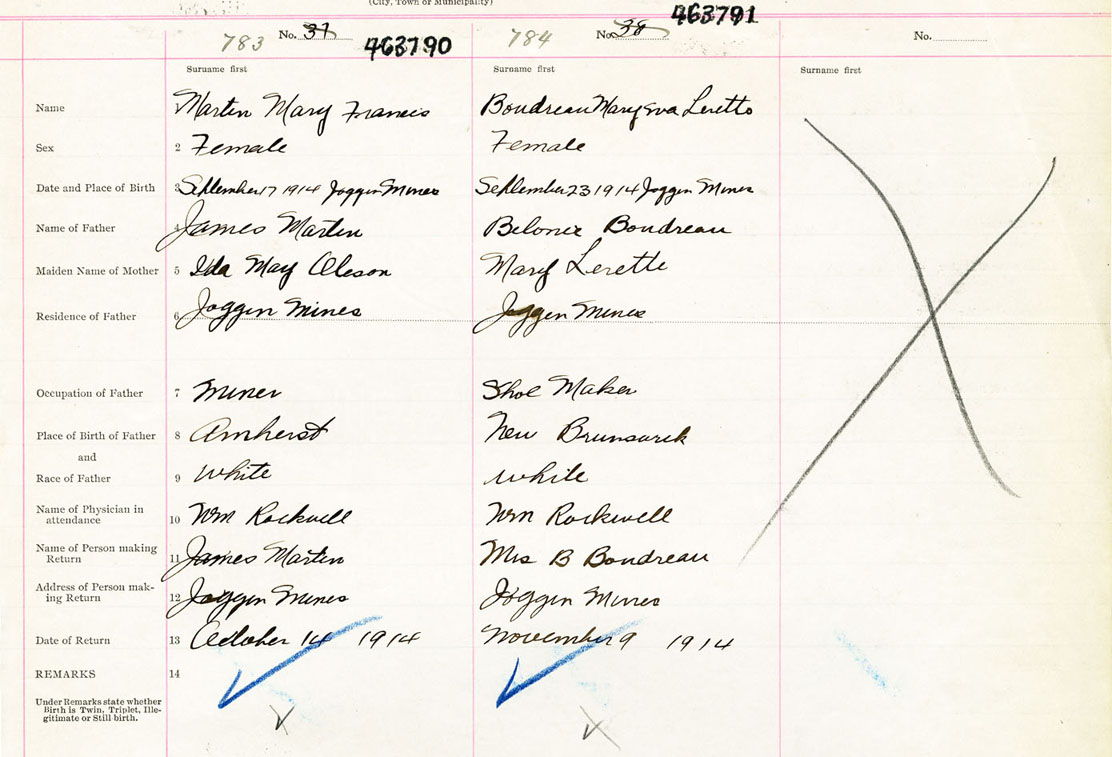 (City, Town or Municipality)
783 No. 37 463790 784 No. 38 463791 No.
Surname first Surname first Surname first
Name Martin Mary Francis Boudreau Mary Eva Leretto
Sex 2 Female Female
Date and Place of Birth 3 September 17 1914 Joggin Mines September 23 1914 Joggin Mines
Name of Father 4 James Martin Belonie Boudreau
Maiden Name of Mother 5 Ida May Oleson Mary Lerette
Residence of Father 6 Joggin Mines Joggin Mines
Occupation of Father 7 Miner Shoe Maker
Place of Birth of Father 8 Amherst New Brunswick
and
Race of Father 9 White White
Name of Physician in
attendance 10 Wm Rockwell Wm Rockwell
Name of Person making
Return 11 James Martin Mrs B Boudreau
Address of Person mak-
ing Return 12 Joggin Mines Joggin Mines
Date of Return 13 October 14 1914 November 9 1914
REMARKS 14
Under Remarks state whether
Birth is Twin, Triplet, Ille-
gitimate or Still-birth.